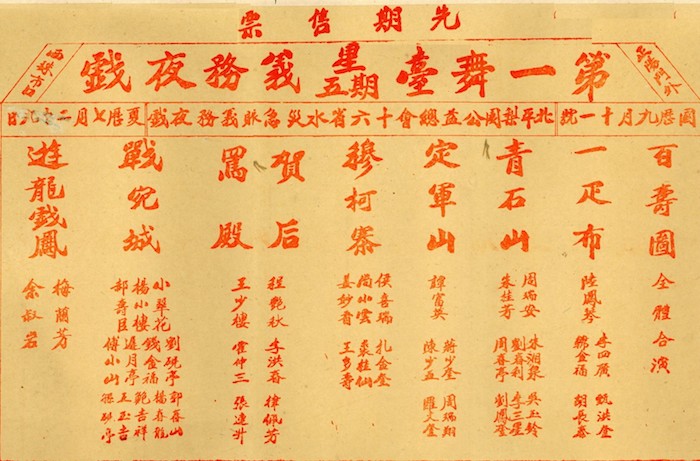 先期售票
正陽門外
第一舞臺星期五義務夜戲
西珠市口
國曆九月十一號
北平梨園公益總會十六省水災急賑義務夜戲
夏曆七月二十九日
百壽圖
全體合演
一疋布
陸鳳琴
李四廣
甄洪奎
胡長泰
青石山
周瑞安
朱桂芳
朱湘泉
劉春利
周春亭
吳玉鈴
李三星
劉鳳奎
定軍山
譚富英
蔣少奎
陳少五
周瑞翔
穆柯寨
侯喜瑞
尚小雲
姜妙香
扎金奎
裘桂仙
王多壽
賀后
罵殿
程艷秋
王少樓
李洪春
霍仲三
律佩芳
張連升
戰宛城
小翠花
楊小樓
郝壽臣
劉硯亭
錢金福
遲月亭
傅小山
郭春山
楊春龍
鮑吉祥
王玉吉
遊龍戲鳳
梅蘭芳
余叔岩